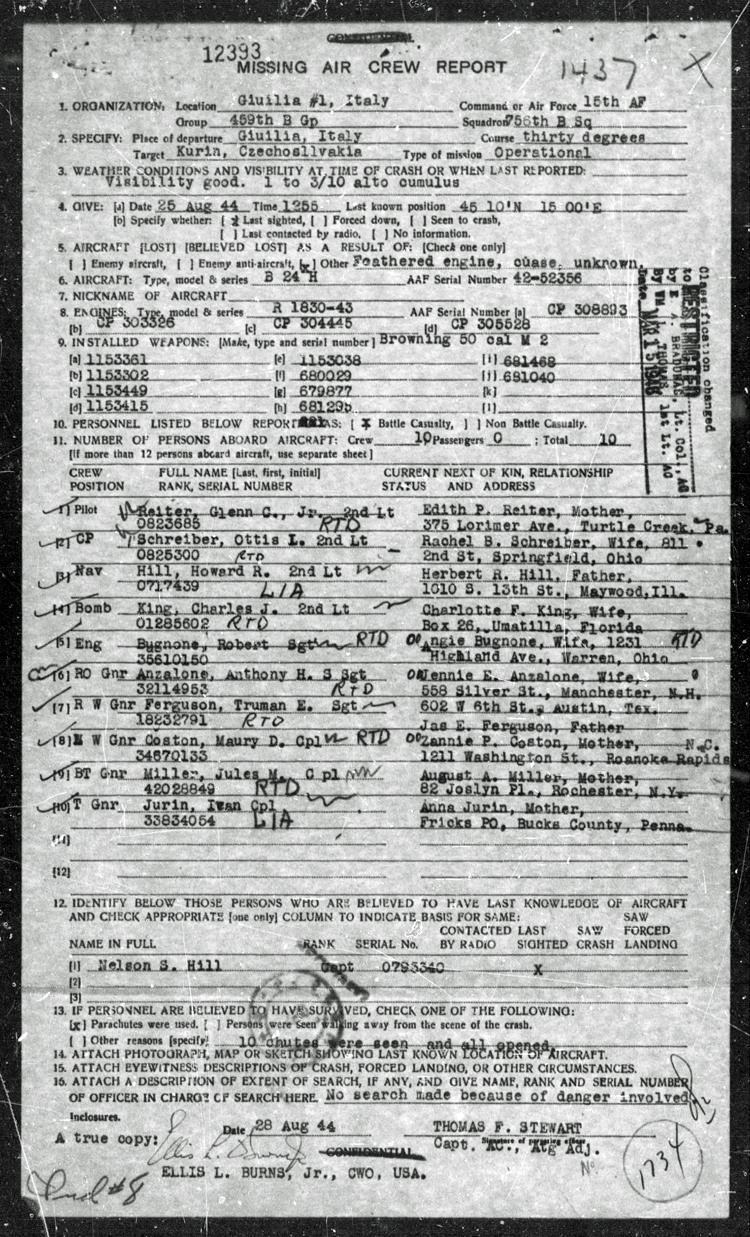 CONFIDENTIAL
12393
MISSING AIR CREW REPORT
1437 X
1. ORGANIZATION: Location Giuilia #1, Italy Command or Air Force 15th AF
Group 459th B Gp Squadron 756th B Sq
2. SPECIFY: Place of departure Giuilia, Italy Course thirty degrees
Target Kurin, Czechosllvakia Type of mission Operational
3. WEATHER CONDITIONS AND VISIBILITY AT TIME OF CRASH OR WHEN LAST REPORTED:
Visibility good. 1 to 3/10 alto cumulus
4. GIVE: [a] Date 25 Aug 44 Time 1255 Last known position 45 10'N 15 00'E
[b] Specify whether: [x] Last sighted, [ ] Forced down, [ ] Seen to crash,
[ ] Last contacted by radio, [ ] No information.
5. AIRCRAFT [LOST] [BELIEVED LOST] AS A RESULT OF: [Check one only]
[ ] Enemy aircraft, [ ] Enemy anti-aircraft, [x] Other Feathered engine, cuase unknown.
6. AIRCRAFT: Type, model & series B 24 H AAF Serial Number 42-52356
7. NICKNAME OF AIRCRAFT
8. ENGINES: Type, model & series R 1830-43 AAF Serial Number [a] CP 308893
[b] CP 303326 [c] CP 304445 [d] CP 305528
9. INSTALLED WEAPONS: [Make, type and serial number] Browning 50 cal M 2
[a] 1153361 [e] 1153038 [i] 681468
[b] 1153302 [f] 680029 [j] 681040
[c] 1153449 [g] 679877 [k]
[d] 1153415 [h] 681295 [l]
10. PERSONNEL LISTED BELOW REPORTED AS: [X] Battle Casualty, [ ] Non Battle Casualty.
11. NUMBER OF PERSONS ABOARD AIRCRAFT: Crew 10 Passengers 0 ; Total 10
[If more than 12 persons aboard aircraft, use separate sheet]
Classification changed
to RESTRICTED
by E. A. BRADUNAS, Lt. Col., AC
By WM. L. THOMAS, 1st Lt. AC
Date MAR 15 1946
CREW FULL NAME [Last, first, initial] CURRENT NEXT OF KIN, RELATIONSHIP
POSITION RANK, SERIAL NUMBER STATUS AND ADDRESS
[1] Pilot Reiter, Glenn C., Jr. 2nd Lt Edith P. Reiter, Mother,
0823685 RTD 375 Lorimer Ave., Turtle Creek, Pa.
[2] CP Schreiber, Ottis L. 2nd Lt Rachel B. Schreiber, Wife, 811
0825300 RTD 2nd St, Springfield, Ohio
[3] Nav Hill, Howard R. 2nd Lt Herbert R. Hill, Father,
0717439 LIA 1010 S. 13th St., Maywood, Ill.
[4] Bomb King, Charles J. 2nd Lt Charlotte F. King, Wife,
01285602 RTD Box 26, Umatilla, Florida
[5] Eng Bugnone, Robert Sgt RTD Angie Bugnone, Wife, 1231 RTD
35610150 Highland Ave., Warren, Ohio
[6] RO Gnr Anzalone, Anthony H. S Sgt Jennie E. Anzalone, Wife,
32114953 RTD 558 Silver St., Manchester, N.H.
[7] R W Gnr Ferguson, Truman E. Sgt 602 W 6th St., Austin, Tex.
18232791 RTD Jas E. Ferguson, Father
[8] W Gnr Coston, Maury D. Cpl RTD Zannie P. Coston, Mother, N.C.
34670133 1211 Washington St., Roanoke Rapids
[9] BT Gnr Miller, Jules M. C pl August A. Miller, Mother,
42028849 RTD 82 Joslyn Pl., Rochester, N.Y.
[10] T Gnr Jurin, Iwan Cpl Anna Jurin, Mother,
33834054 LIA Fricks PO, Bucks County, Penna.
[11]
[12]
12. IDENTIFY BELOW THOSE PERSONS WHO ARE BELIEVED TO HAVE LAST KNOWLEDGE OF AIRCRAFT
AND CHECK APPROPRIATE [one only] COLUMN TO INDICATE BASIS FOR SAME: SAW
CONTACTED LAST SAW FORCED
NAME IN FULL RANK SERIAL No. BY RADIO SIGHTED CRASH LANDING
[1] Nelson S. Hill Capt 0793340 X
[2]
[3]
13. IF PERSONNEL ARE BELIEVED TO HAVE SURVIVED, CHECK ONE OF THE FOLLOWING:
[x] Parachutes were used. [ ] Persons were seen walking away from the scene of the crash.
[ ] Other reasons [specify] 10 chutes were seen and all opened.
14. ATTACH PHOTOGRAPH, MAP OR SKETCH SHOWING LAST KNOWN LOCATION OF AIRCRAFT.
15. ATTACH EYEWITNESS DESCRIPTIONS OF CRASH, FORCED LANDING, OR OTHER CIRCUMSTANCES.
16. ATTACH A DESCRIPTION OF EXTENT OF SEARCH, IF ANY, AND GIVE NAME, RANK AND SERIAL NUMBER
OF OFFICER IN CHARGE OF SEARCH HERE. No search made because of danger involved
Inclosures.
Date 28 Aug 44 THOMAS F. STEWART
A true copy: Signature of preparing officer
Capt. AC., Atg Adj.
CONFIDENTIAL
No
1734
ELLIS L. BURNS, Jr., CWO, USA.
Incl #8